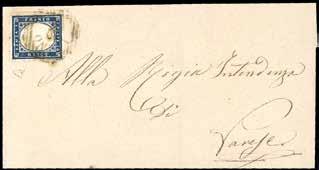 FRANCO
Alla Regia Intendenza
Di
Varese